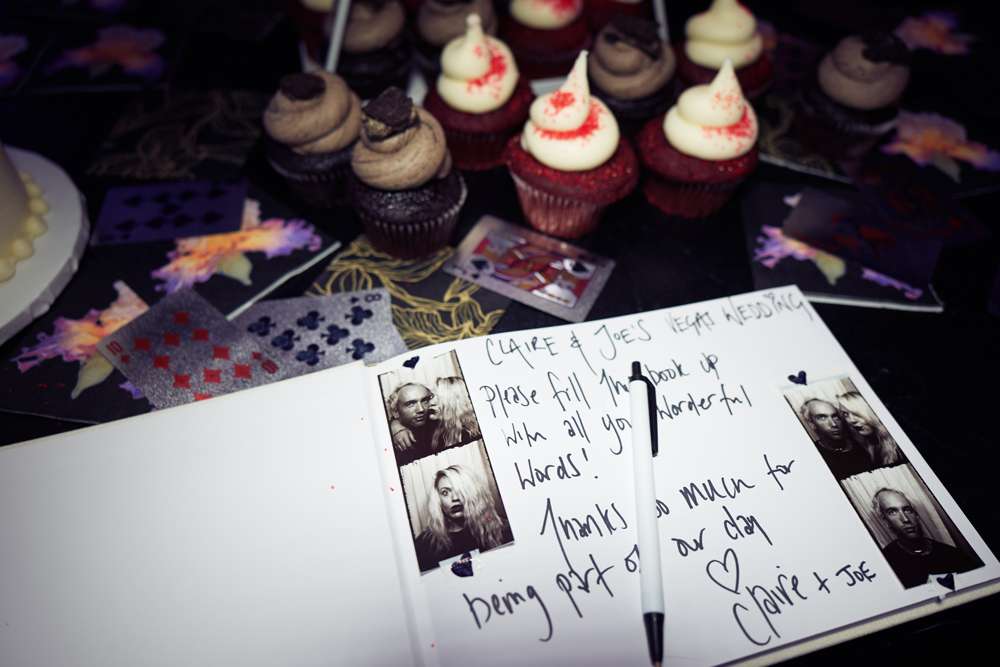 CLAIRE & JOE'S VEGAS WEDDING
Please fill this book up
with all your wonderful
words!
Thanks so much for
being part of our day
Claire + JOE
10
8